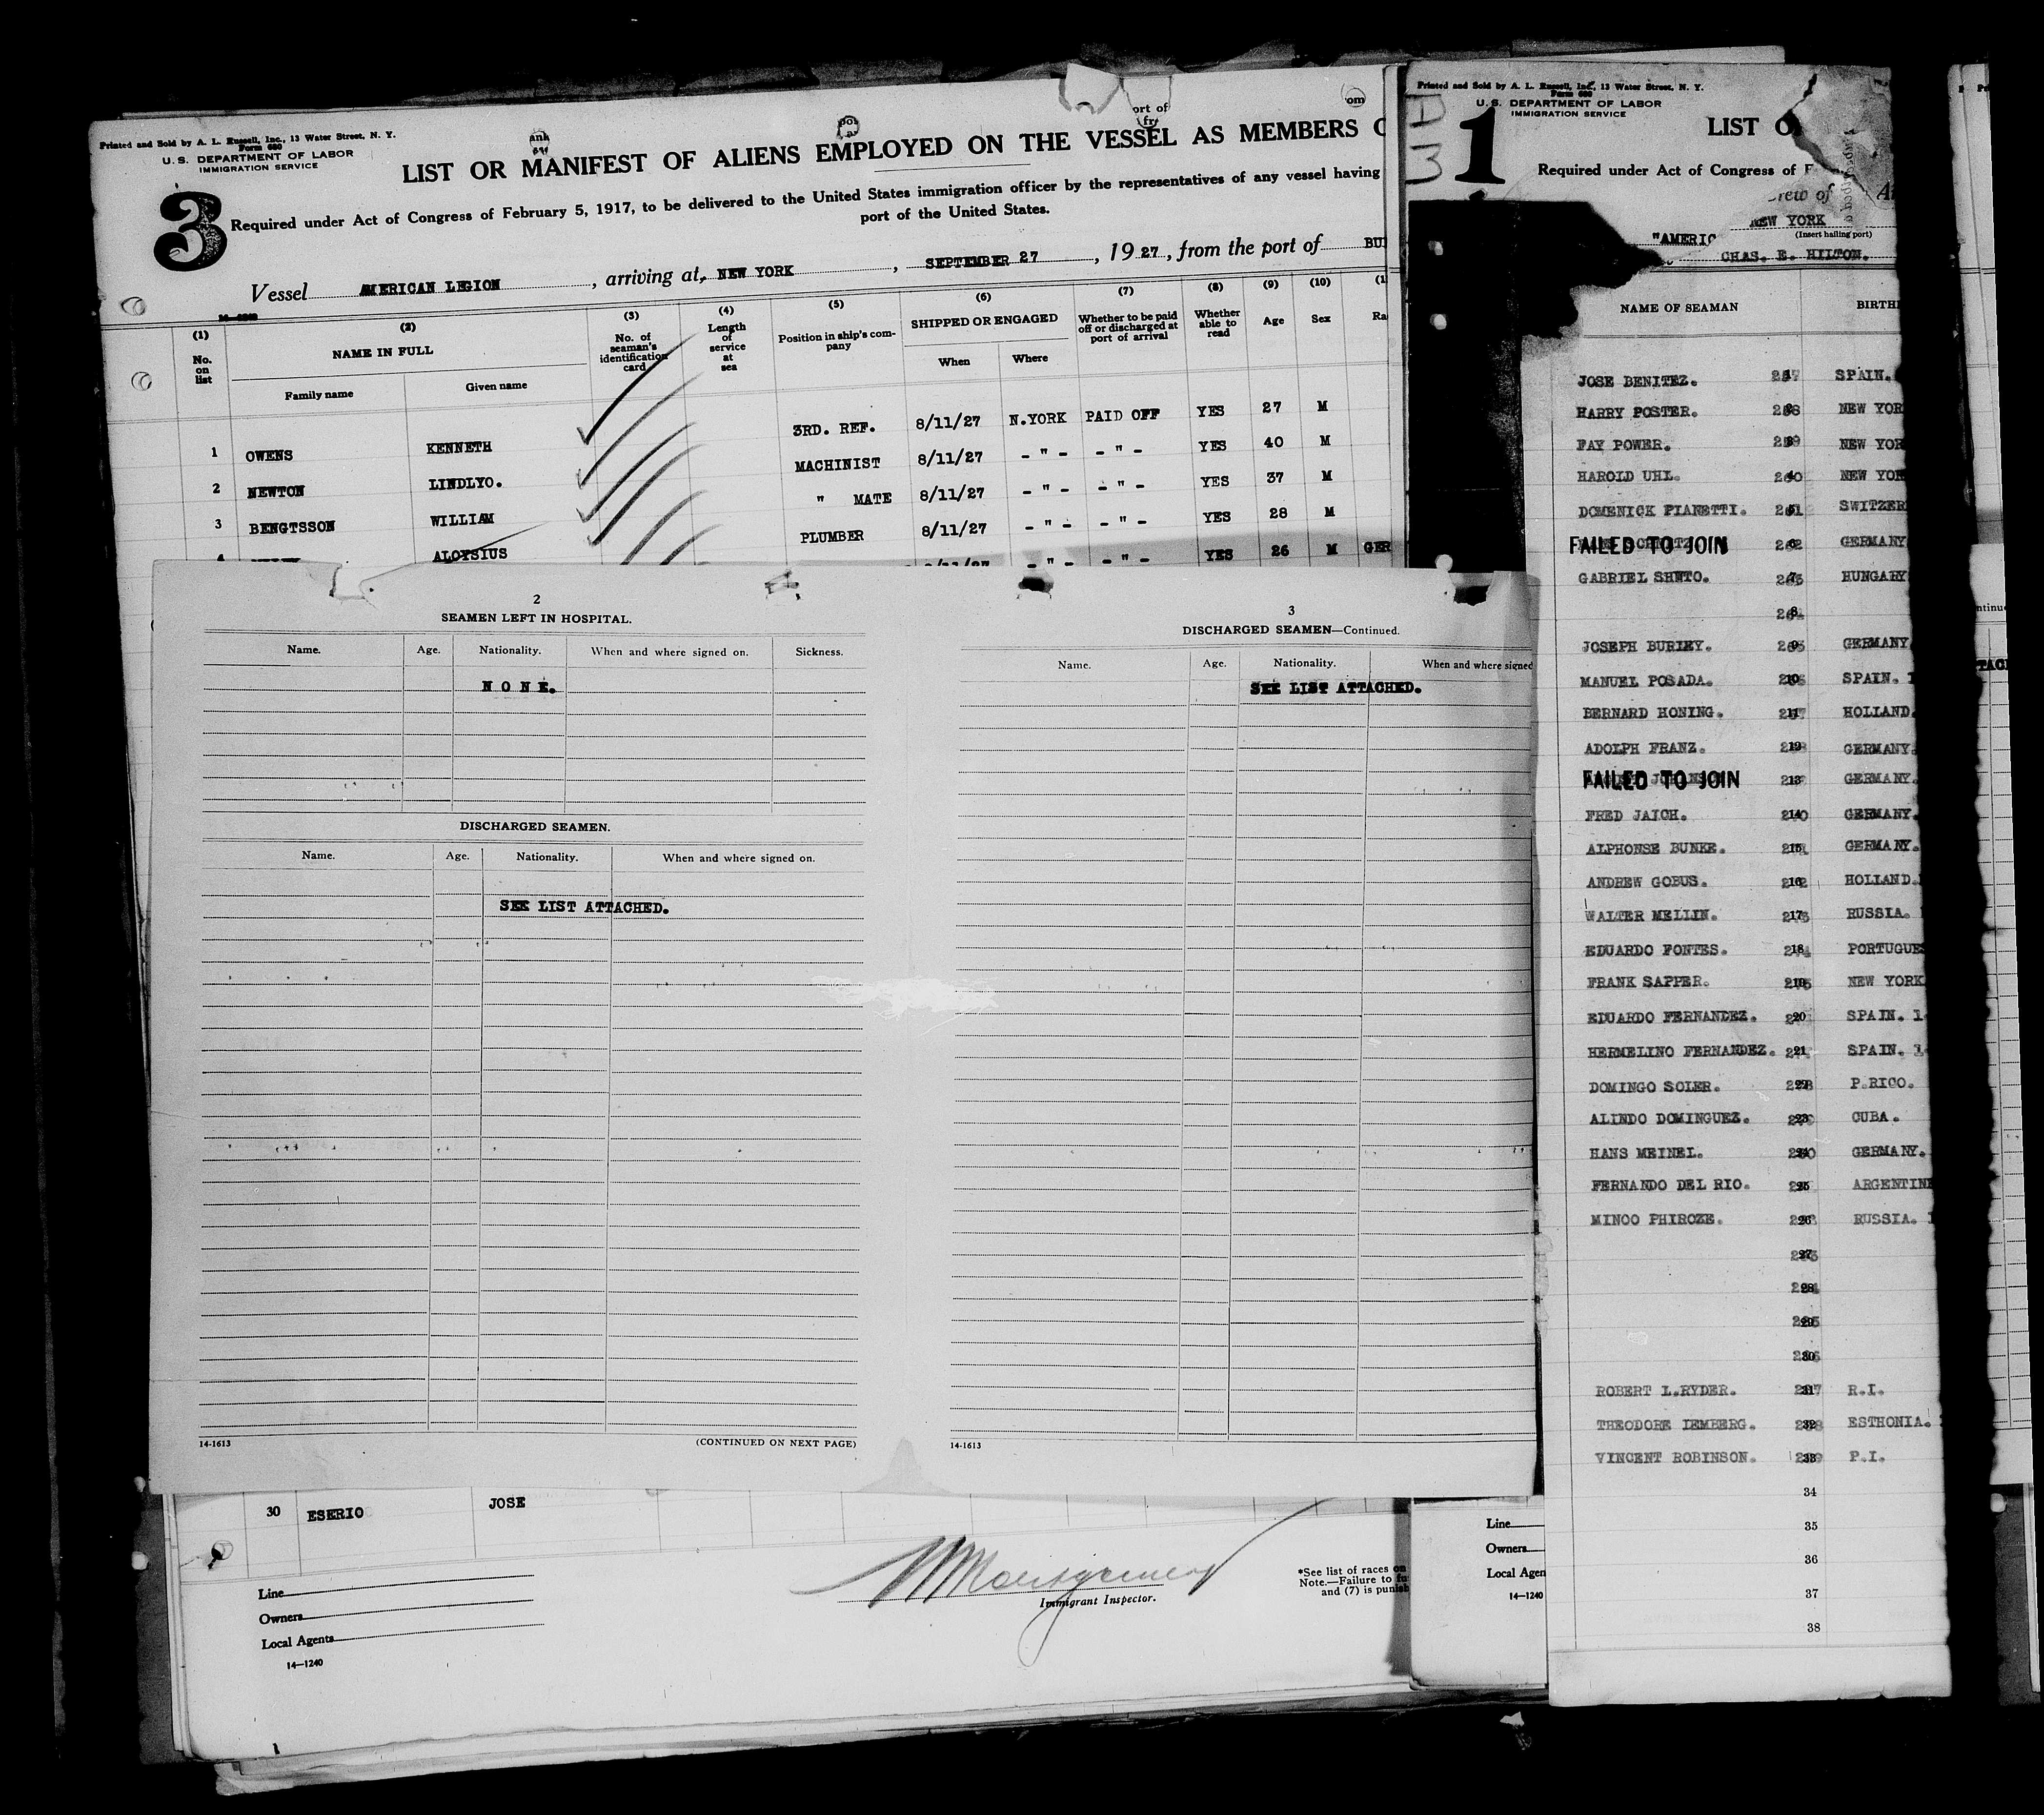 Printed and Sold by A. L. Russell, Inc., 13 Water Street, N. Y.
Form 680
U. S. DEPARTMENT OF LABOR
IMMIGRATION SERVICE
3
LIST OR MANIFEST OF ALIENS EMPLOYED ON THE VESSEL AS MEMBERS
Required under Act of Congress of February 5, 1917, to be delivered to the United States immigration officer by the representatives of any vessel having
port of the United States.
Vessel AMERICAN LEGION , arriving at, NEW YORK , SEPTEMBER 27 , 1927 , from the port of
(1) (2) (3) (4) (5) (6) (7) (8) (9) (10)
No. on list NAME IN FULL No. of seaman's identification card Length of service at sea Position in ship's company SHIPPED OR ENGAGED Whether to be paid off or discharged at port of arrival Whether able to read Age Sex
Family name Given name When Where
1 OWENS KENNETH 3RD. REF. 8/11/27 N.YORK PAID OFF YES 27 M
2 NEWTON LINDLYO. MACHINIST 8/11/27 - " - - " - YES 40 M
3 BENGTSSON WILLIAM " MATE 8/11/27 - " - - " - YES 37 M
4 ALOYSIUS PLUMBER 8/11/27 - " - - " - YES 28 M
- " - - " - YES 26 M GER
2
SEAMEN LEFT IN HOSPITAL.
Name. Age. Nationality. When and where signed on. Sickness.
N O N E.
DISCHARGED SEAMEN.
Name. Age. Nationality. When and where signed on.
SEE LIST ATTACHED.
14-1613 (CONTINUED ON NEXT PAGE)
3
DISCHARGED SEAMEN—Continued.
Name. Age. Nationality. When and where signed
SEE LIST ATTACHED.
14-1613
30 ESERIO JOSE
Line
Owners
Local Agents
14—1240
Montgomery
Immigrant Inspector.
*See list of races on
Note.—Failure to
and (7) is punish
Line
Owners
Local Agen
14—1240
Printed and Sold by A. L. Russell, Inc., 13 Water Street, N. Y.
Form 680
U. S. DEPARTMENT OF LABOR
IMMIGRATION SERVICE
1
LIST O
Required under Act of Congress of F
rew of
NEW YORK
(Insert hailing port)
"AMERIC
CHAS. E. HILTON.
NAME OF SEAMAN BIRTH
JOSE BENITEZ. SPAIN.
HARRY POSTER. NEW YOR
FAY POWER. NEW YOR
HAROLD UHL. NEW YOR
DOMENICK PIANETTI. SWITZER
FAILED TO JOIN 6 GERMANY
GABRIEL SHNTO. 7 HUNGARY
8
JOSEPH BURLEY. 9 GERMANY
MANUEL POSADA. 10 SPAIN.
BERNARD HONING. 11 HOLLAND.
ADOLPH FRANZ. 12 GERMANY.
FAILED TO JOIN 13 GERMANY.
FRED JAICH. 14 GERMANY.
ALPHONSE BUNKE. 15 GERMANY.
ANDREW GOBUS. 16 HOLLAND.
WALTER MELLIN. 17 RUSSIA.
EDUARDO FONTES. 18 PORTUGUE
FRANK SAPPER. 19 NEW YORK
EDUARDO FERNANDEZ. 20 SPAIN.
HERMELINO FERNANDEZ. 21 SPAIN.
DOMINGO SOLER. 22 P.RICO.
ALINDO DOMINGUEZ. 23 CUBA.
HANS MEINEL. 24 GERMANY.
FERNANDO DEL RIO. 25 ARGENTINE
MINOO PHIROZE. 26 RUSSIA.
27
28
29
30
ROBERT L.RYDER. 31 R.I.
THEODORE LEMBERG. 32 ESTHONIA.
VINCENT ROBINSON. 33 P.I.
34
35
36
37
38